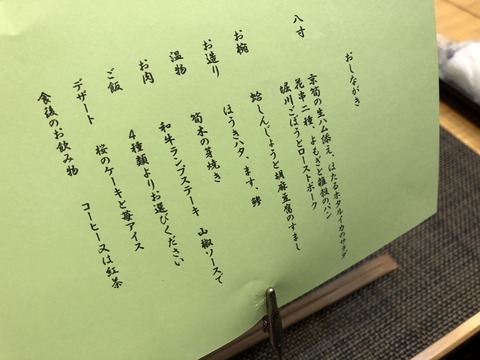 おしながき
八寸
京筍の生ハム添え、ほたるホタルイカのサラダ
花串二種、よもぎと雑穀のパン
堀川ごぼうとローストポーク
お椀
蛤しんじょうと胡麻豆腐のすまし
お造り
ほうきハタ、ます、鯵
温物
筍木の芽焼き
お肉
和牛ランプステーキ 山椒ソースで
ご飯
4種類よりお選びください
デザート
桜のケーキと苺アイス
食後のお飲み物
コーヒー又は紅茶